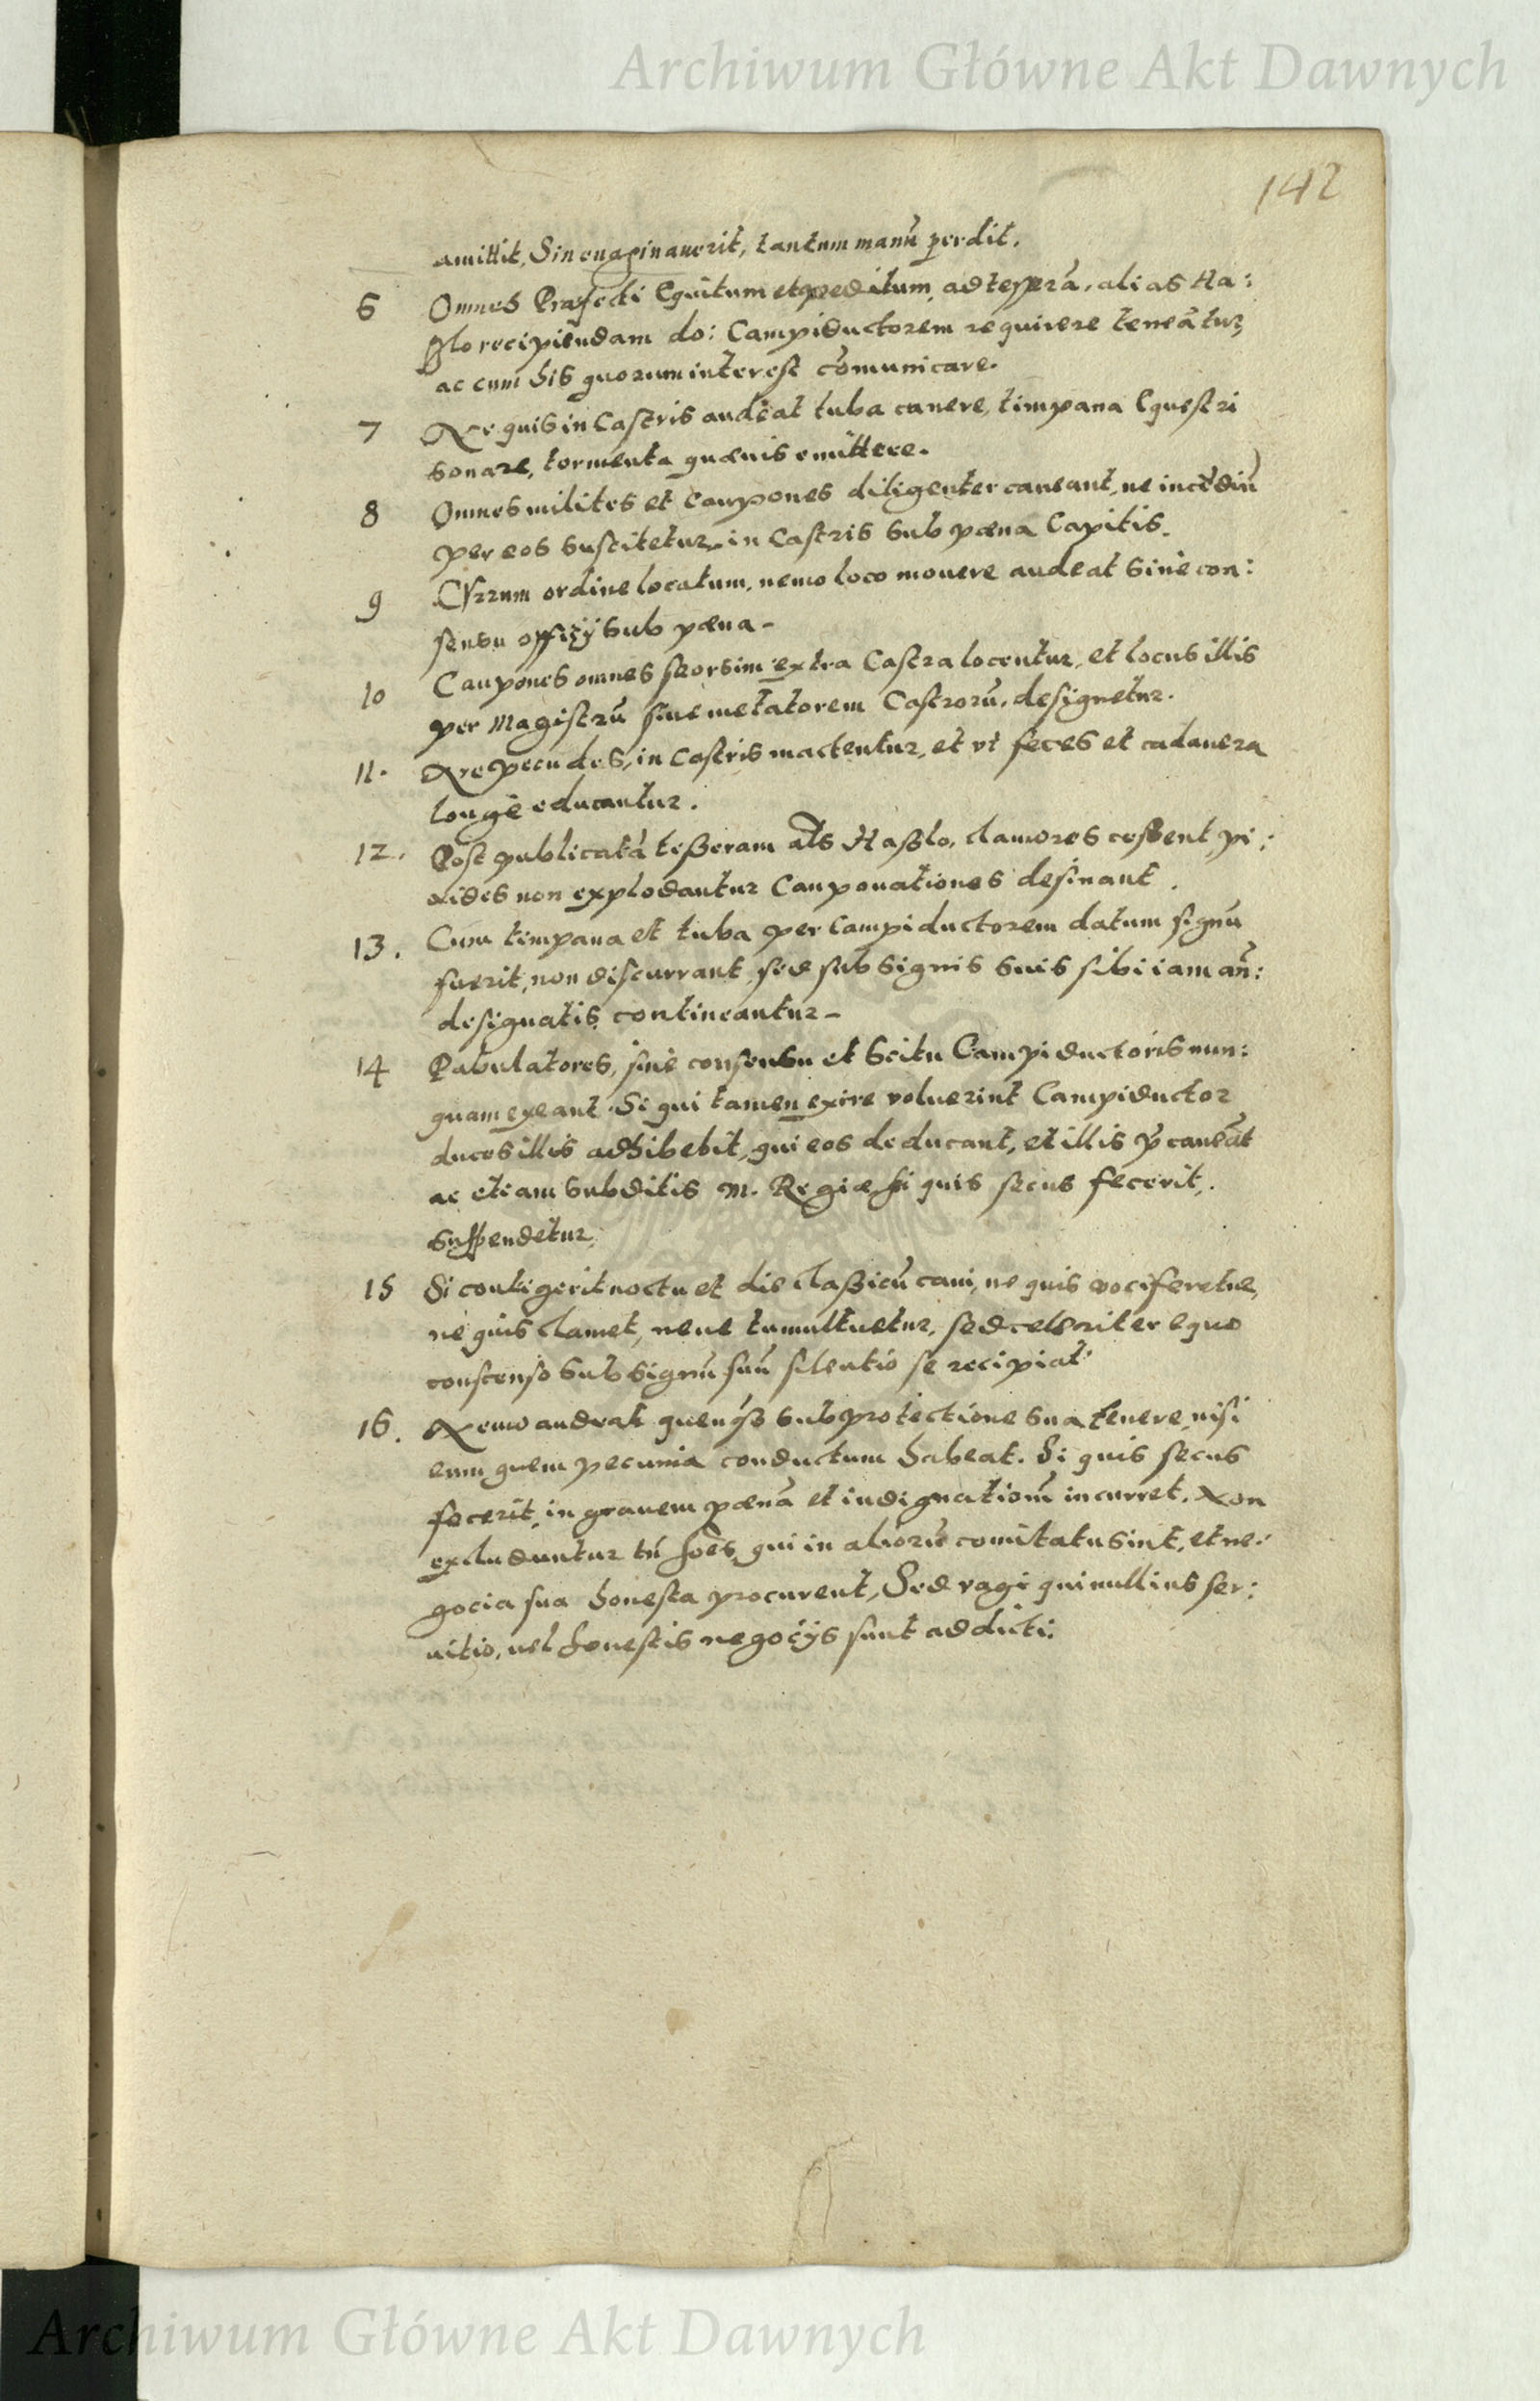 Archiwum Główne Akt Dawnych
142
amittit, Sin euaginauerit, tantum manũ perdit.
6 Omnes Præfecti Equitum et peditum, ad tesserã, alias Ha:
slo recipiendam do: Campiductorem requirere teneãtur,
ac cum his quorum interest cõmunicare.
7 Ne quis in Castris audeat tuba canere, timpana Equestri
sonare, tormenta quæuis emittere.
8 Omnes milites et Caupones diligenter caueant, ne incẽdiũ
per eos suscitetur, in Castris sub pæna Capitis.
9 Currum ordine locatum, nemo loco mouere audeat sine con:
sensu officÿ sub pæna -
10 Caupones omnes seorsim extra Castra locentur, et locus illis
per Magistrũ siue metatorem Castrorũ, designetur.
11. Ne pecudes, in Castris mactentur, et vt feces et cadauera
longè educantur.
12. Post publicatã tesseram als Haslo, clamores cessent, pi:
xides non explodantur Cauponationes desinant.
13. Cum timpana et tuba per Campiductorem datum signũ
fuerit, non discurrant, sed sub signis suis sibi iam añ:
designatis contineantur -
14 Pabulatores, sine consensu et scitu Campiductoris nun:
quam exeant. Si qui tamen exire voluerint Campiductor
duces illis adhibebit, qui eos deducant, et illis p̃caueãt
ac etiam subditis M. Regiæ si quis secus fecerit,
suspendetur.
15 Si contigerit noctu et die classicũ cani, ne quis vociferetur,
ne quis clamet, neue tumultuetur, sed celeriter equo
conscenso sub signũ suũ silentio se recipiat.
16. Nemo audeat quenq3 sub protectione sua tenere, nisi
eum quem pecunia conductum habeat. Si quis secus
fecerit, in grauem pænã et indignationẽ incurret. Non
excluduntur tñ hões, qui in aliorũ comitatu sint, et ne:
gocia sua honesta procurent, Sed vagi qui nullius ser:
uitio, uel honestis negocÿs sunt addicti:
Archiwum Główne Akt Dawnych